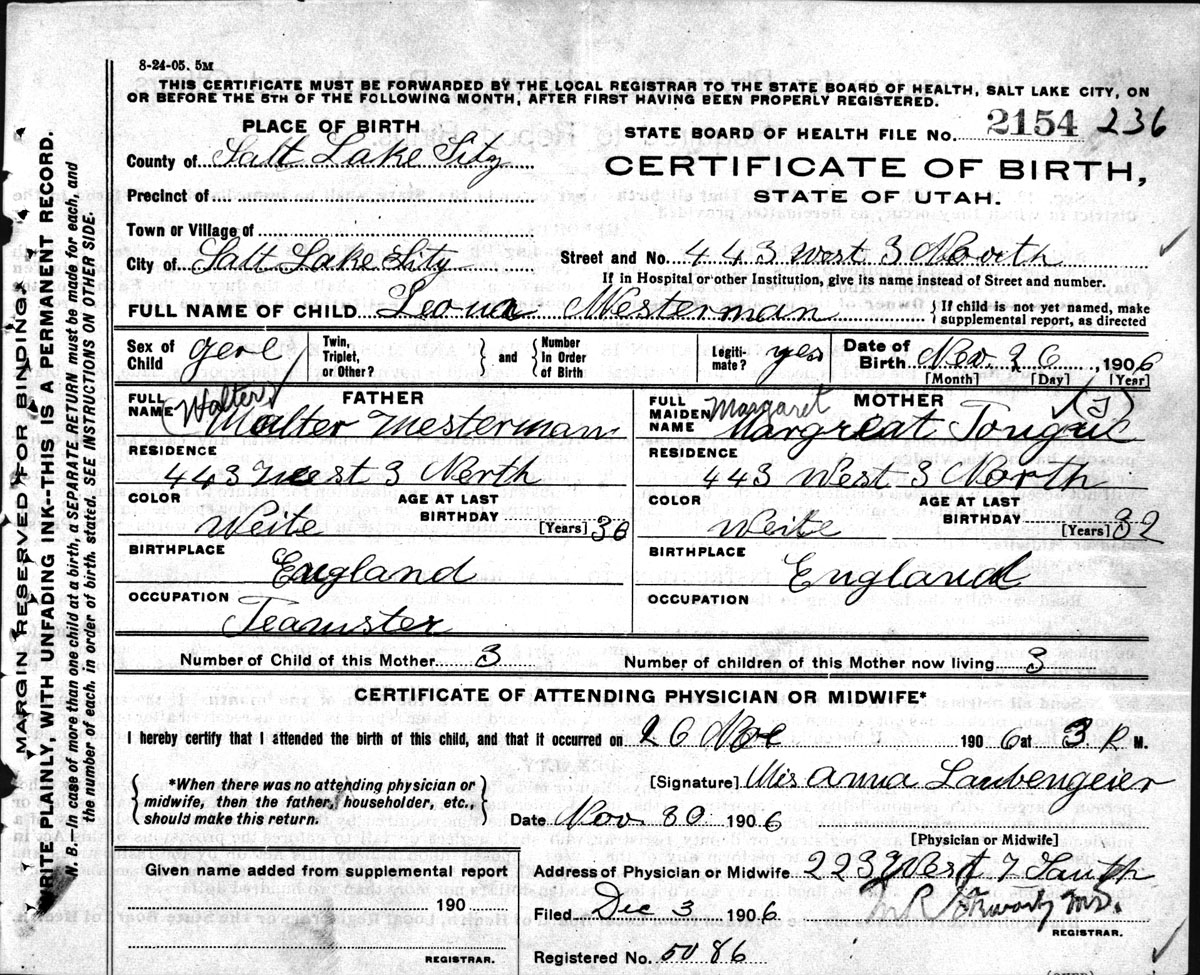 8-24-05. 5M
THIS CERTIFICATE MUST BE FORWARDED BY THE LOCAL REGISTRAR TO THE STATE BOARD OF HEALTH, SALT LAKE CITY, ON
OR BEFORE THE 5TH OF THE FOLLOWING MONTH, AFTER FIRST HAVING BEEN PROPERLY REGISTERED.
PLACE OF BIRTH
STATE BOARD OF HEALTH FILE No. 2154 236
County of Salt Lake Sity
CERTIFICATE OF BIRTH,
STATE OF UTAH.
Precinct of
Town or Village of
City of Salt Lake Sity Street and No. 443 west 3 North
If in Hospital or other Institution, give its name instead of Street and number.
FULL NAME OF CHILD Leona Westerman {If child is not yet named, make supplemental report, as directed
Sex of Child gerl Twin, Triplet, or Other? } and { Number In Order of Birth Legiti-mate? yes Date of Birth Nov 26, 1906
[Month] [Day] [Year]
FATHER
FULL NAME (Walter) Walter Westerman
RESIDENCE
443 West 3 North
COLOR AGE AT LAST BIRTHDAY
Weite [Years] 36
BIRTHPLACE
England
OCCUPATION
Teamster
MOTHER
FULL MAIDEN NAME Margaret (J)
Margreat Tongue
RESIDENCE
443 West 3 North
COLOR AGE AT LAST BIRTHDAY
Weite [Years] 32
BIRTHPLACE
England
OCCUPATION
Number of Child of this Mother 3 Number of children of this Mother now living 3
CERTIFICATE OF ATTENDING PHYSICIAN OR MIDWIFE*
I hereby certify that I attended the birth of this child, and that it occurred on 26 Nov 1906 at 3 P M.
{*When there was no attending physician or
midwife, then the father, householder, etc.,
should make this return.}
[Signature] Mis Anna Laubengeier
Date Nov 30 1906
[Physician or Midwife]
Given name added from supplemental report
190
REGISTRAR.
Address of Physician or Midwife 223 West 7 South
Filed Dec 3 1906
REGISTRAR.
Registered No. 5086
MARGIN RESERVED FOR BINDING
WRITE PLAINLY, WITH UNFADING INK--THIS IS A PERMANENT RECORD.
N. B.—In case of more than one child at a birth, a SEPARATE RETURN must be made for each, and
the number of each, in order of birth, stated. SEE INSTRUCTIONS ON OTHER SIDE.